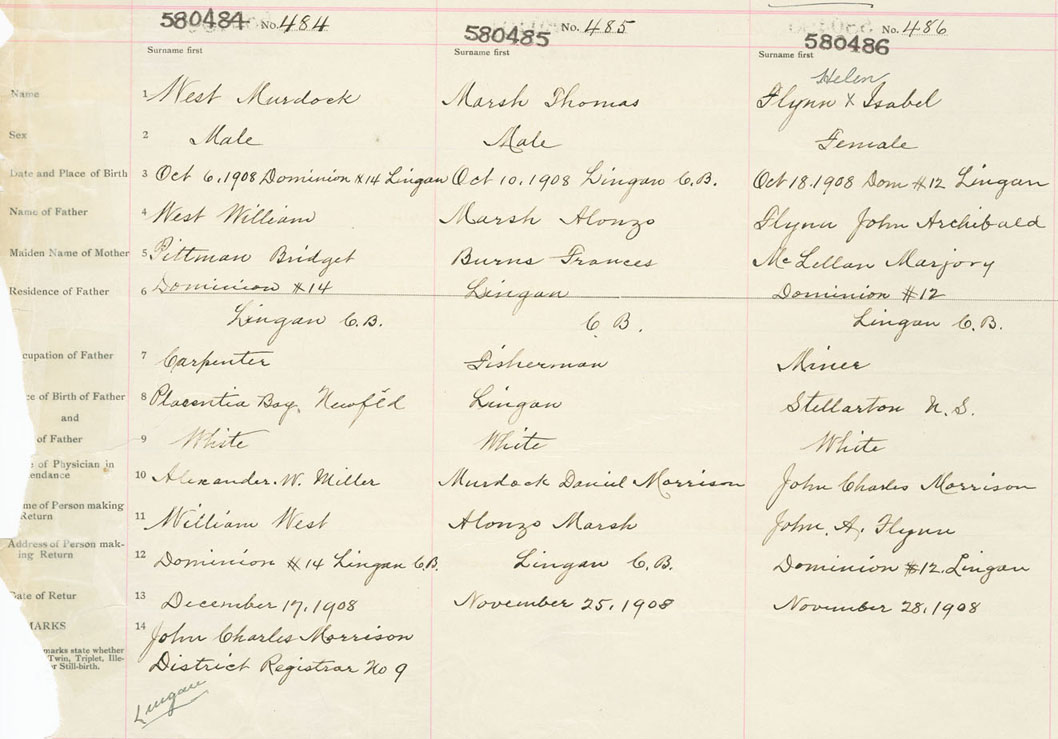 580484 No. 484 580485 No. 485 580486 No. 486
Surname first Surname first Surname first
Helen
Name 1 West Murdock Marsh Thomas Flynn x Isabel
Sex 2 Male Male Female
Date and Place of Birth 3 Oct 6, 1908 Dominion #14 Lingan Oct 10, 1908 Lingan C.B. Oct 18. 1908 Dom #12 Lingan
Name of Father 4 West William Marsh Alonzo Flynn John Archibald
Maiden Name of Mother 5 Pittman Bridget Burns Frances McLellan Marjory
Residence of Father 6 Dominion #14 Lingan Dominion #12
Lingan C.B. C B. Lingan C.B.
cupation of Father 7 Carpenter Fisherman Miner
ce of Birth of Father 8 Placentia Bay, Newfld Lingan Stellarton N.S.
and
of Father 9 White White White
e of Physician in
endance 10 Alexander. W. Miller Murdock Daniel Morrison John Charles Morrison
me of Person making
Return 11 William West Alonzo Marsh John. A. Flynn
Address of Person mak-
ing Return 12 Dominion #14 Lingan C.B. Lingan C.B. Dominion #12. Lingan
Date of Retur 13 December 17, 1908 November 25, 1908 November 28, 1908
MARKS 14 John Charles Morrison
marks state whether
Twin, Triplet, Ille-
r Still-birth.
District Registrar No 9
Lingan